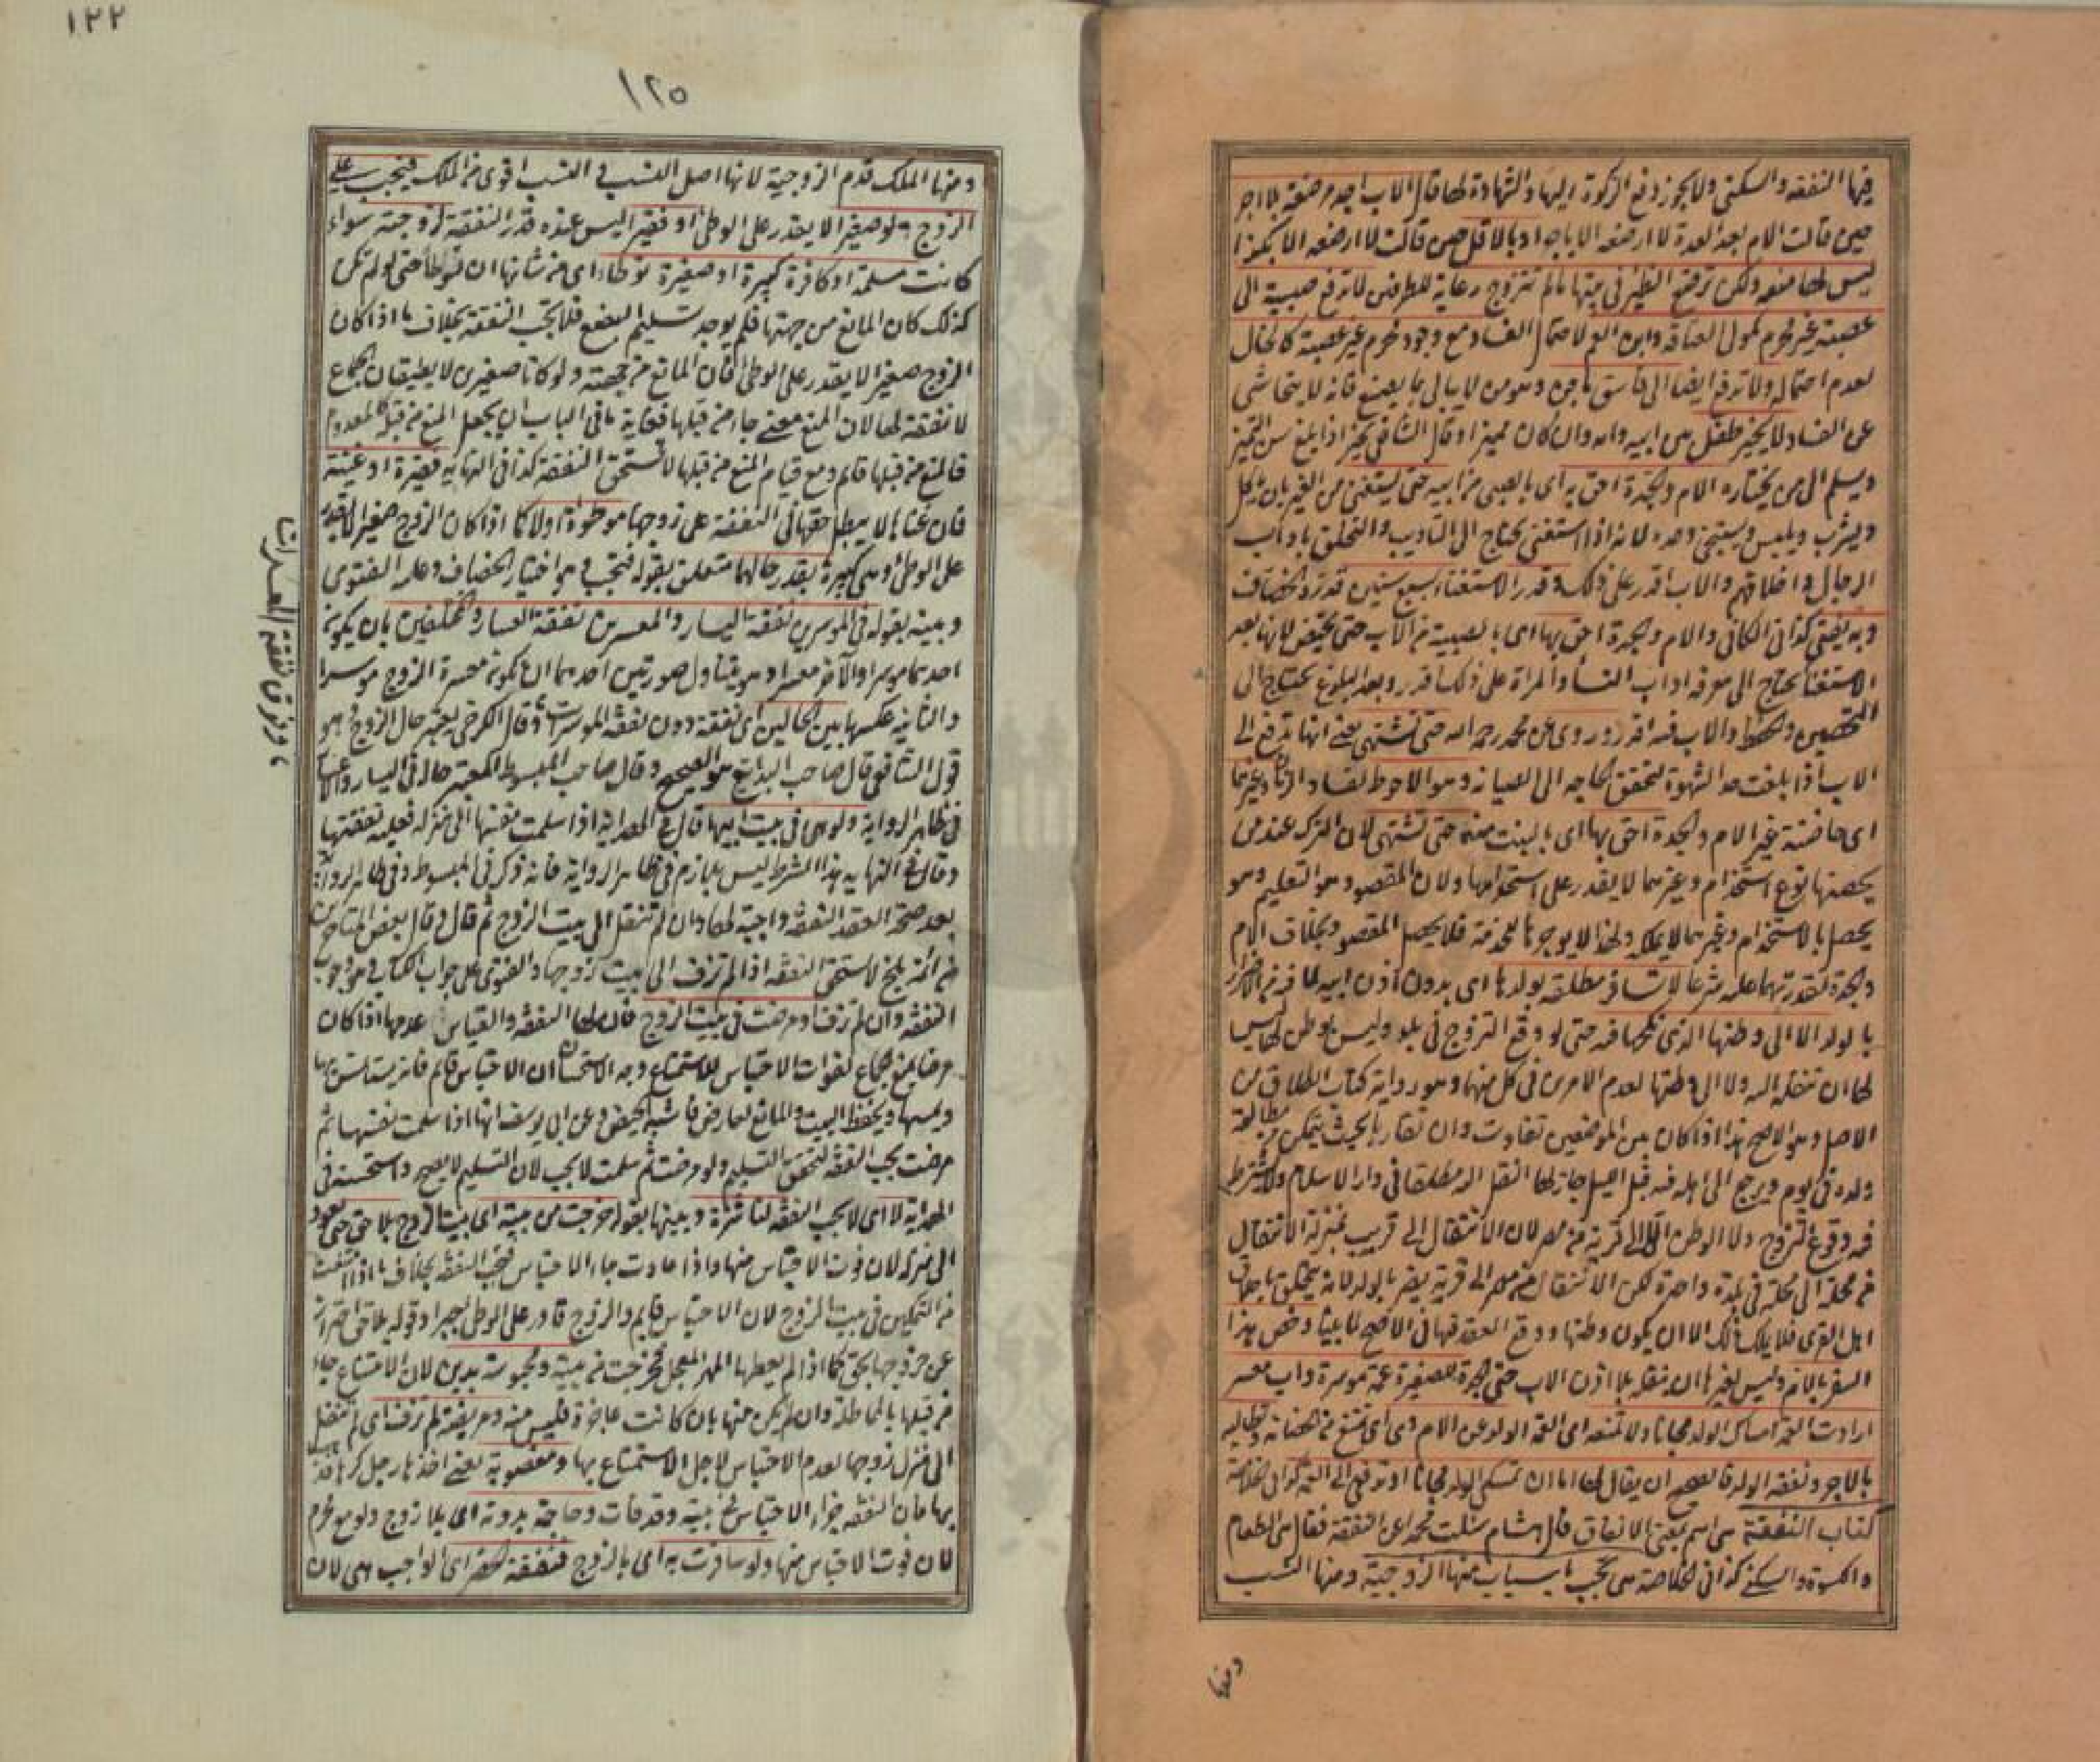 فيها النفقة والسكنى ولا يجوز دفع الزكوة اليها والشهادة لها قال الاب اجد مرضعة بلا اجر
حين قالت الام بعد العدة لا ارضعه الا باجر او بالاقل حين قالت لا ارضعه الا بكذا
ليس لها منعه ولكن ترضع الظئر في بيتها ما لم تتزوج رعاية للطرفين لا تدفع صبية الى
عصبة غير محرم كمولى العتاقة وابن العم لاحتمال الفساد مع وجود محرم غير عصبة كالخال
لعدم احتماله ولا تدفع ايضا الى فاسق ماجن وهو من لا يبالي بما يصنع فانه لا يتحاشى
عن الفساد لا يخير طفل بين ابيه وامه وان كان مميزا وقال الشافعي يخير اذا بلغ سن التميز
ويسلم الى من يختاره الام والجدة احق به اى بالصبى من ابيه حتى يستغنى من الغير بان ياكل
ويشرب ويلبس ويستنجى وحده لانه اذا استغنى يحتاج الى التاديب والتخلق باداب
الرجال واخلاقهم والاب اقدر على ذلك وقدر الاستغناء بسبع سنين قدره الخصاف
وبه يفتى كذا في الكافي والام والجدة احق بها اى بالصبية من الاب حتى تحيض لانها بعد
الاستغنا تحتاج الى معرفة اداب النساء والمراة على ذلك اقدر وبعد البلوغ تحتاج الى
التحصين والحفظ والاب فيه اقدر وروى عن محمد رحمه الله حتى تشتهى يعنى انها تدفع الى
الاب اذا بلغت حد الشهوة لتحقق الحاجة الى الصيانة وهو الاحوط لفساد الزمان وغيرهما
اى حاضنة غير الام والجدة احق بها اى بالبنت منه حتى تشتهى لان الترك عند من
يحضنها نوع استخدام وغيرهما لا يقدر على استخدامها ولان المقصود هو التعليم وهو
يحصل بالاستخدام وغيرهما لا يملكه ولهذا لا يوجرها للخدمة فلا يحصل المقصود بخلاف الام
والجدة لقدرتهما عليه شرعا لا تسافر مطلقة بولدها اى بدون اذن ابيه لما فيه من الاضرار
بالولد الا الى وطنها الذى نكحها فيه حتى لو وقع التزوج في بلد وليس بوطن لها ليس
لها ان تنقله اليه ولا الى وطنها لعدم الامرين في كل منهما وهو رواية كتاب الطلاق من
الاصل وهو الاصح هذا اذا كان بين الموضعين تفاوت وان تقاربا بحيث يتمكن من مطالعة
ولده في يوم ويرجع الى اهله فيه قبل الليل جاز لها النقل اليه مطلقا في دار الاسلام ولا يشترط
فيه وقوع التزوج ولا الوطن الا الى قرية من مصر لان الانتقال الى قريب بمنزلة الانتقال
من محلة الى محلة في بلدة واحدة لكن الانتقال من مصر الى قرية يضر بالولد لانه يتخلق باخلاق
اهل القرى فلا يملك ذلك الا ان يكون وطنها ووقع العقد فيها في الاصح لما بينا وخص هذا
السفر بالام وليس لغيرها ان ينقله بلا اذن الاب حتى الجدة للصغيرة عمة موسرة واب معسر
ارادت العمة امساك الولد مجانا ولا تمنعه اى العمة الولد عن الام وهى اى تمتنع من الحضانة وتطالبه
بالاجر ونفقة الولد فالصحيح ان يقال لها اما ان تمسكى الولد مجانا او تدفعى الى العمة كذا في الخلاصة
كتاب النفقة هى اسم بمعنى الانفاق قال هشام سئلت محمدا عن النفقة فقال هى الطعام
والكسوة والسكنى كذا في الخلاصة هى تجب باسباب منها الزوجية ومنها النسب
ومنها
١٢٢
١٢٥
ومنها الملك قدم الزوجية لانها اصل النسب في النسب اقوى من الملك فتجب على
الزوج ولو صغيرا لا يقدر على الوطئ او فقيرا ليس عنده قدر النفقة لزوجته سواء
كانت مسلمة او كافرة كبيرة او صغيرة توطا اى من شانها ان توطأ حتى لو لم تكن
كذلك كان المانع من جهتها فلم يوجد تسليم البضع فلا تجب النفقة بخلاف ما اذا كان
الزوج صغيرا لا يقدر على الوطئ فان المانع من جهته ولو كانا صغيرين لا يطيقان الجماع
لا نفقة لها لان المنع معنى جاء من قبلها فغاية ما في الباب ان يجعل المنع من قبله كالمعدوم
فالمنع من قبلها قائم ومع قيام المنع من قبلها لا تستحق النفقة كذا في النهاية فقيرة او غنية
فان غناها لا يبطل حقها في النفقة على زوجها موطوأة اولا كما اذا كان الزوج صغيرا لا يقدر
على الوطئ وهى كبيرة بقدر حالهما متعلق بقوله فتجب وهو اختيار الخصاف وعليه الفتوى
وبينه بقوله في الموسرين نفقة اليسار والمعسرين نفقة العسار والمختلفين بان يكون
احدهما موسرا والاخر معسرا وهو يتناول صورتين احدهما ان تكون معسرة الزوج موسرا
والثانية عكسها بين الحالين اى نفقة دون نفقة الموسرات وقال الكرخى يعتبر حال الزوج وهو
قول الشافعى قال صاحب البدائع هو الصحيح وقال صاحب المبسوط المعتبر حاله في اليسار والاعسار
في ظاهر الرواية ولو هى في بيت ابيها قال في الهداية اذا سلمت نفسها الى منزله فعليه نفقتها
وقال في النهاية هذا الشرط ليس بلازم في ظاهر الرواية فانه ذكر في المبسوط وفي ظاهر الرواية
بعد صحة العقد النفقة واجبة لها وان لم تنتقل الى بيت الزوج ثم قال وقال بعض المتاخرين
من ائمة بلخ لا تستحق النفقة اذا لم تزف الى بيت زوجها والفتوى على جواب الكتاب وهو وجوب
النفقة وان لم تزف او مرضت في بيت الزوج فان لها النفقة والقياس عدمها اذا كان
مرضا يمنع الجماع لفوات الاحتباس للاستمتاع وجه الاستحسان ان الاحتباس قائم فانه يستانس بها
ويمسها ويحفظ البيت والمانع لعارض فاشبه الحيض وعن ابى يوسف انها اذا سلمت نفسها ثم
مرضت تجب النفقة لتحقق التسليم ولو مرضت ثم سلمت لا تجب لان التسليم لا يصح واستحسنه في
الهداية لا اى لا تجب النفقة لناشزة وبينها بقوله خرجت من بيته اى بيت الزوج بلا حق حتى تعود
الى منزله لان فوت الاحتباس منها واذا عادت جاء الاحتباس فتجب النفقة بخلاف ما اذا امتنعت
من التمكين في بيت الزوج لان الاحتباس قايم والزوج قادر على الوطئ جبرا وقوله بلا حق احتراز
عن خروجها بحق كما اذا لم يعطها المهر المعجل فخرجت من بيته ومحبوسة بدين لان الامتناع جاء
من قبلها بالمماطلة وان لم يكن منها بان كانت عاجزة فليس منه ومريضة لم تزف اى لم تنقل
الى منزل زوجها لعدم الاحتباس لاجل الاستمتاع بها ومغصوبة يعنى اخذها رجل كرها فذهب
بها فان النفقة جزاء الاحتباس في بيته وقد فات وحاجة بدونه اى بلا زوج ولو مع محرم
لان فوت الاحتباس منها ولو سافرت به اى بالزوج فنفقة الحضر اى الواجب هى لان